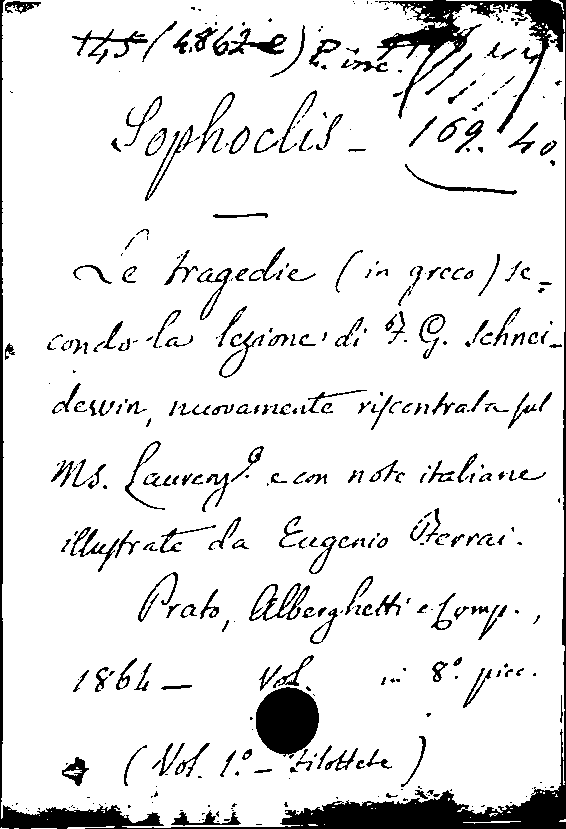 145 (4862 e) R. inc.
Sophoclis — 169. 40.
Le tragedie (in greco) se=
condo la lezione di F. G. Schnei-
dewin, nuovamente riscontrata sul
Ms. Laurenz.º e con note italiane
illustrate da Eugenio Ferrai.
Prato, Alberghetti e Comp.,
1864 — Vol. in 8.º picc.
(Vol. 1.º — Filottete)